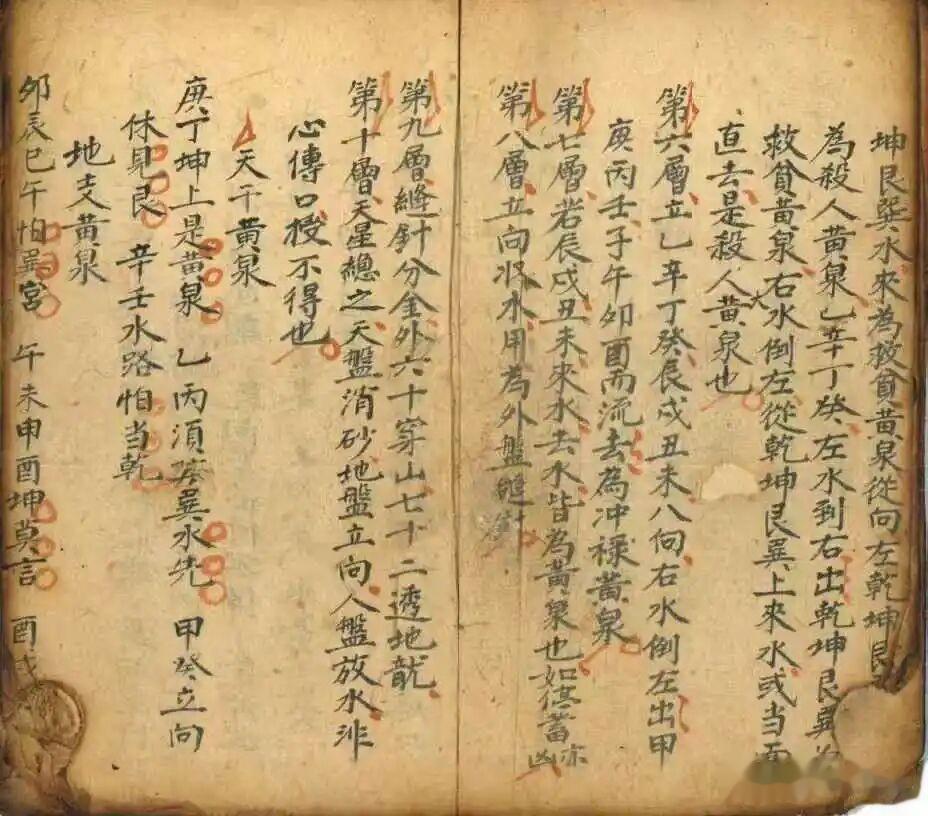 坤艮巽水來為救貧黃泉從向左乾坤艮
為殺人黃泉乙辛丁癸左水到右出乾坤艮巽為
救貧黃泉右水倒左從乾坤艮巽上來水或当面
直去是殺人大黃泉也
第六層立乙辛丁癸辰戌丑未八向右水倒左出甲
庚丙壬子午卯酉而流去為冲祿黃泉
第七層若辰戌丑未來水去水皆為黃泉也如停蓄亦凶
第八層立向將水用為外盤縫針
第九層縫針分金外六十穿山七十二透地龍
第十層天星總之天盤消砂地盤立向人盤放水非
心傳口授不得也
天干黃泉
庚丁坤上是黃泉 乙丙須防巽水先 甲癸立向
休見艮 辛壬水路怕当乾
地支黃泉
卯辰巳午怕巽宮 午未申酉坤莫言 酉戌